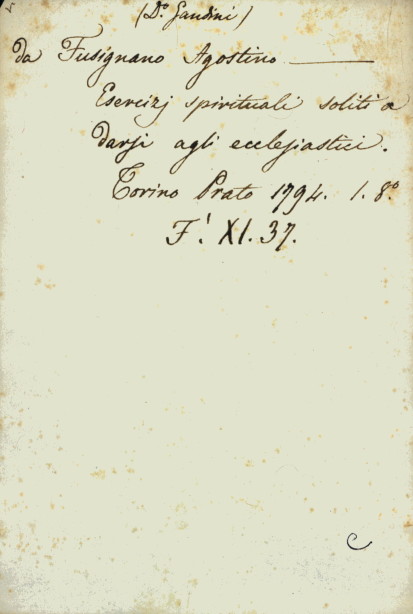 (D.º Gandini)
da Fusignano Agostino ———
Esercizj spirituali soliti a
darsi agli ecclesiastici.
Torino Prato 1794. 1. 8.º
F! XI. 37.
C